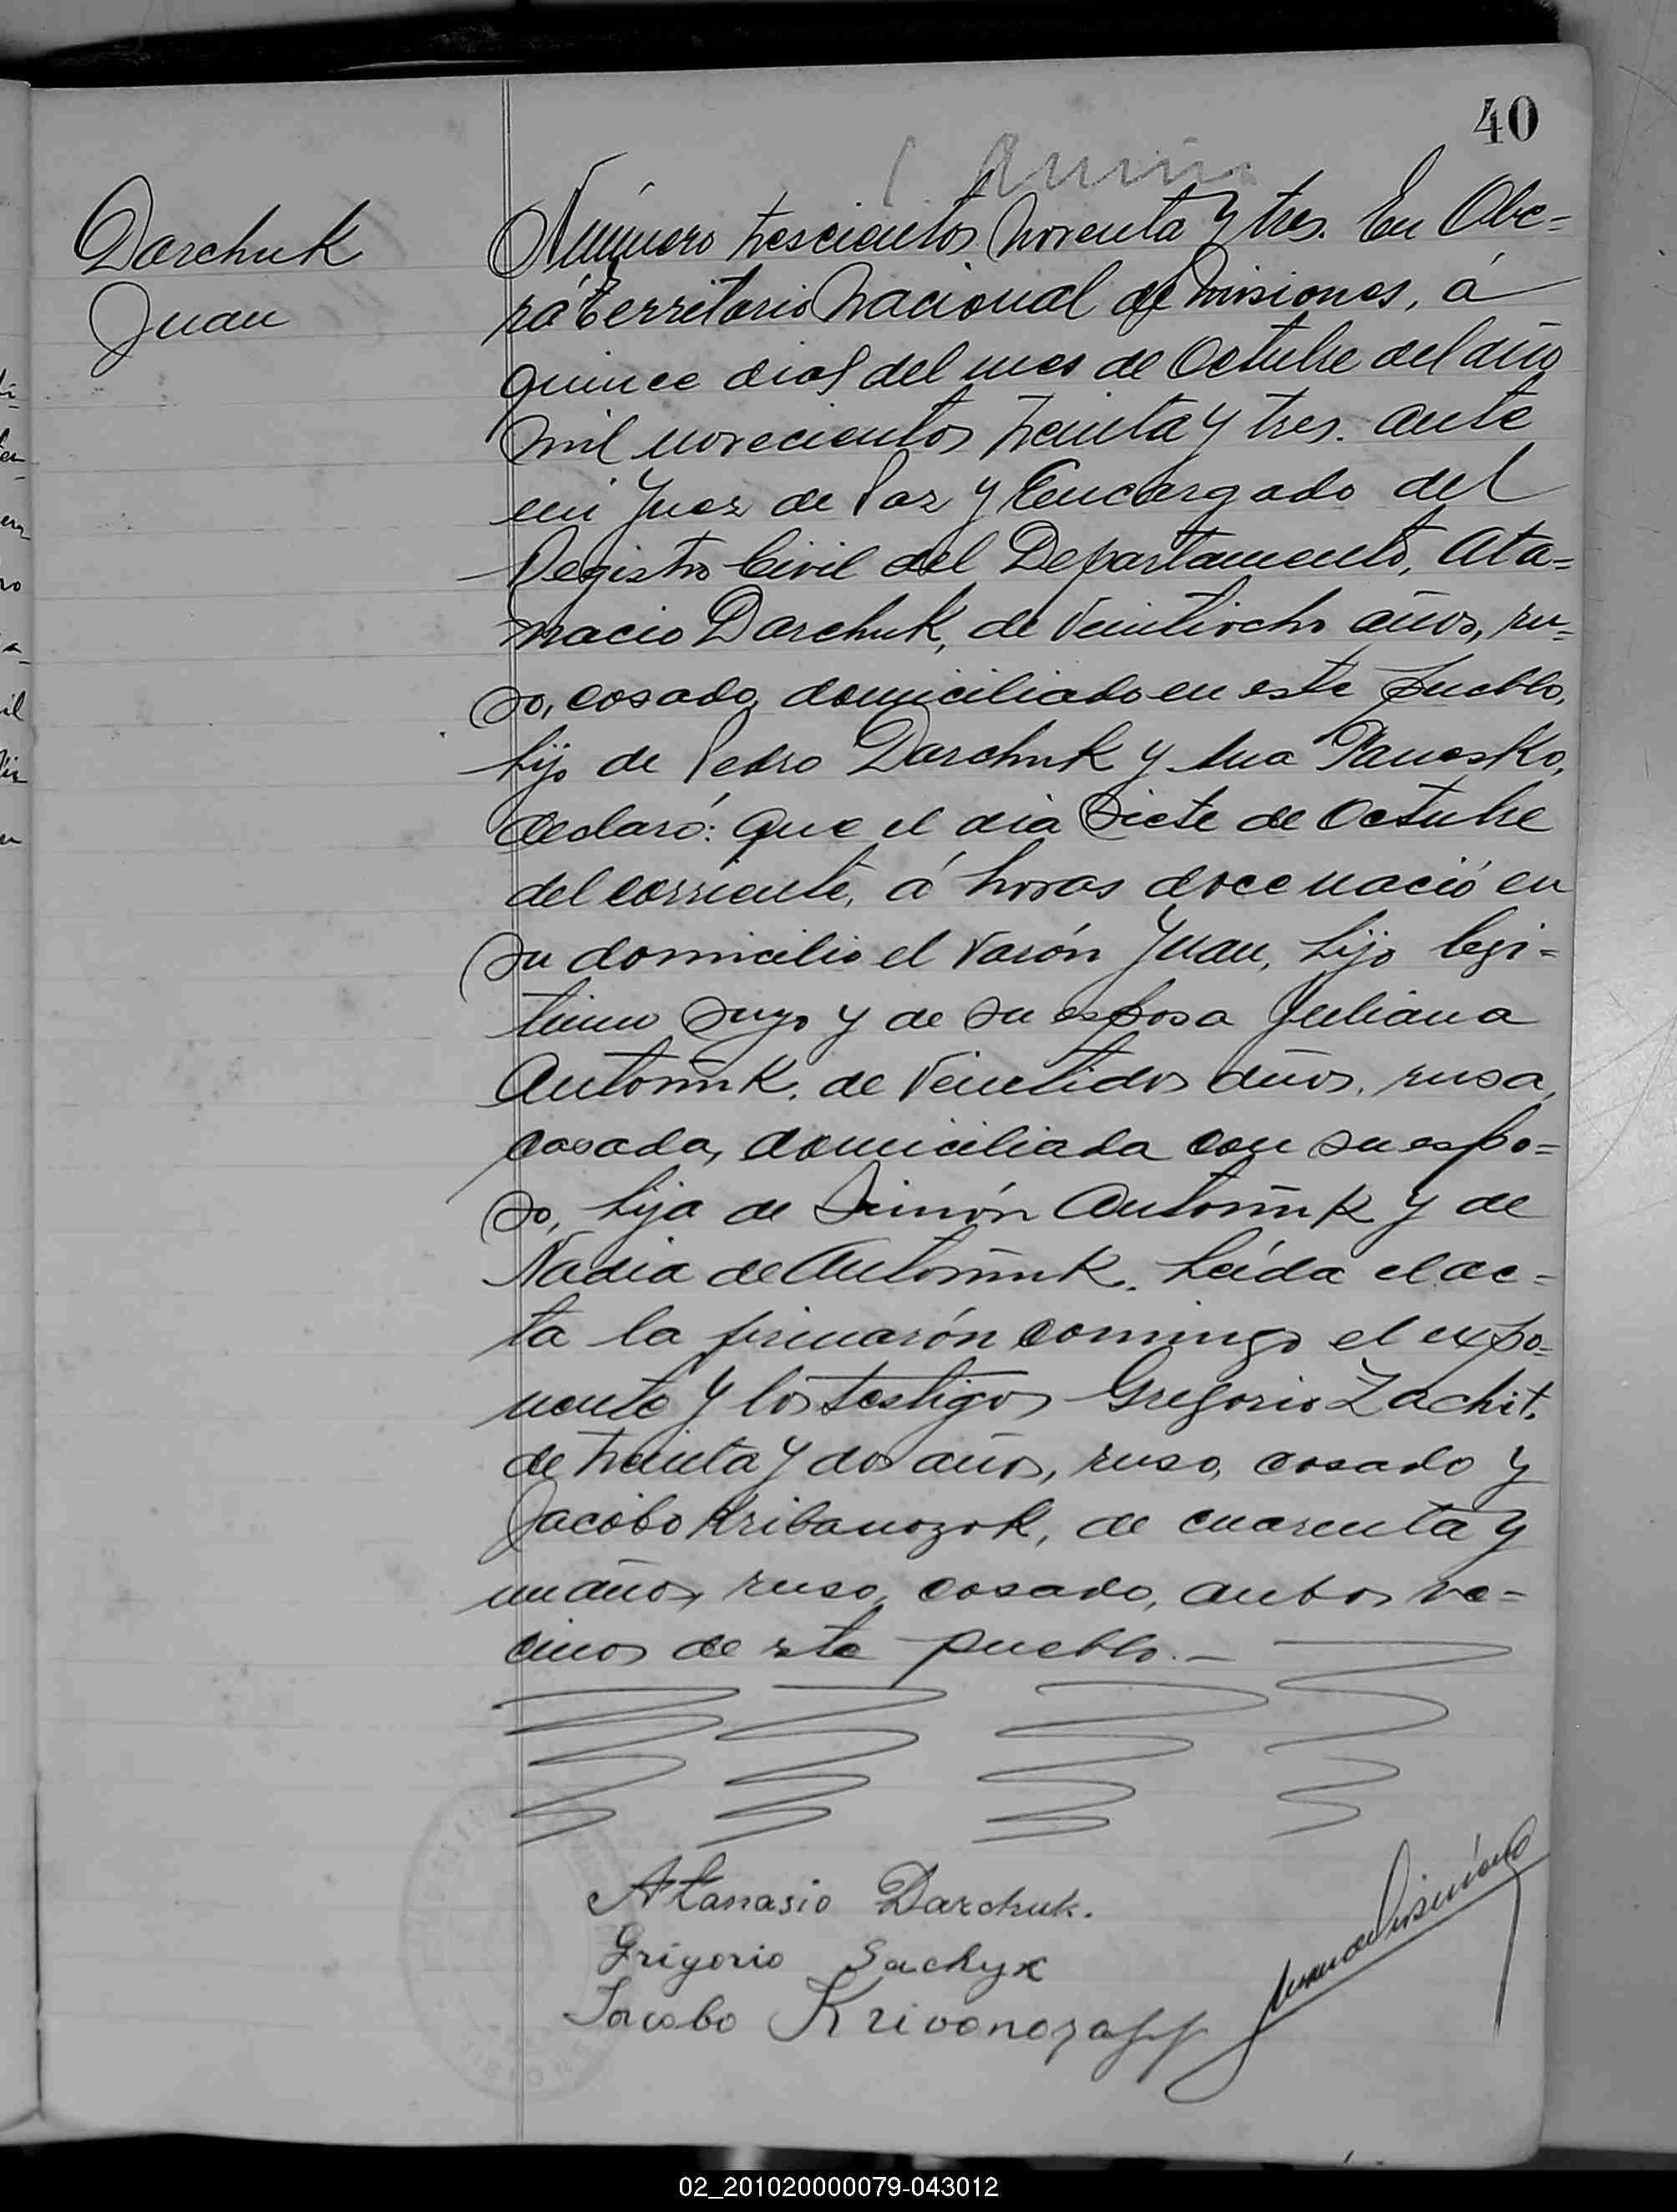 40
Darchuk
Juan
Número trescientos noventa y tres. En Obe=
rá Territorio Nacional de Misiones, á
quince dias del mes de Octubre del año
mil novecientos treinta y tres. ante
mi Juez de Paz y Encargado del
Registro Civil del Departamento, Ata=
nacio Darchuk, de veintiocho años, ru=
so, casado, domiciliado en este pueblo,
hijo de Pedro Darchuk y Ana Panasko,
declaró: Que el dia siete de Octubre
del corriente, á horas doce nació en
su domicilio el varón Juan, hijo legi=
timo suyo y de su esposa Juliana
Antoñuk, de veintidos años, rusa,
casada, domiciliada con su espo=
so, hija de Simón Antoñuk y de
Nadia de Antoñuk. Leída el ac=
ta la firmarón conmigo el expo=
nente y los testigos Gregorio Zachit,
de treinta y dos años, ruso, casado y
Jacobo Kribanozok, de cuarenta y
un años, ruso, casado, anbos ve=
cinos de este pueblo.-
Atanasio Darchuk.
Grigorio Sachyk
Jacobo Krivonozaff
02_201020000079-043012